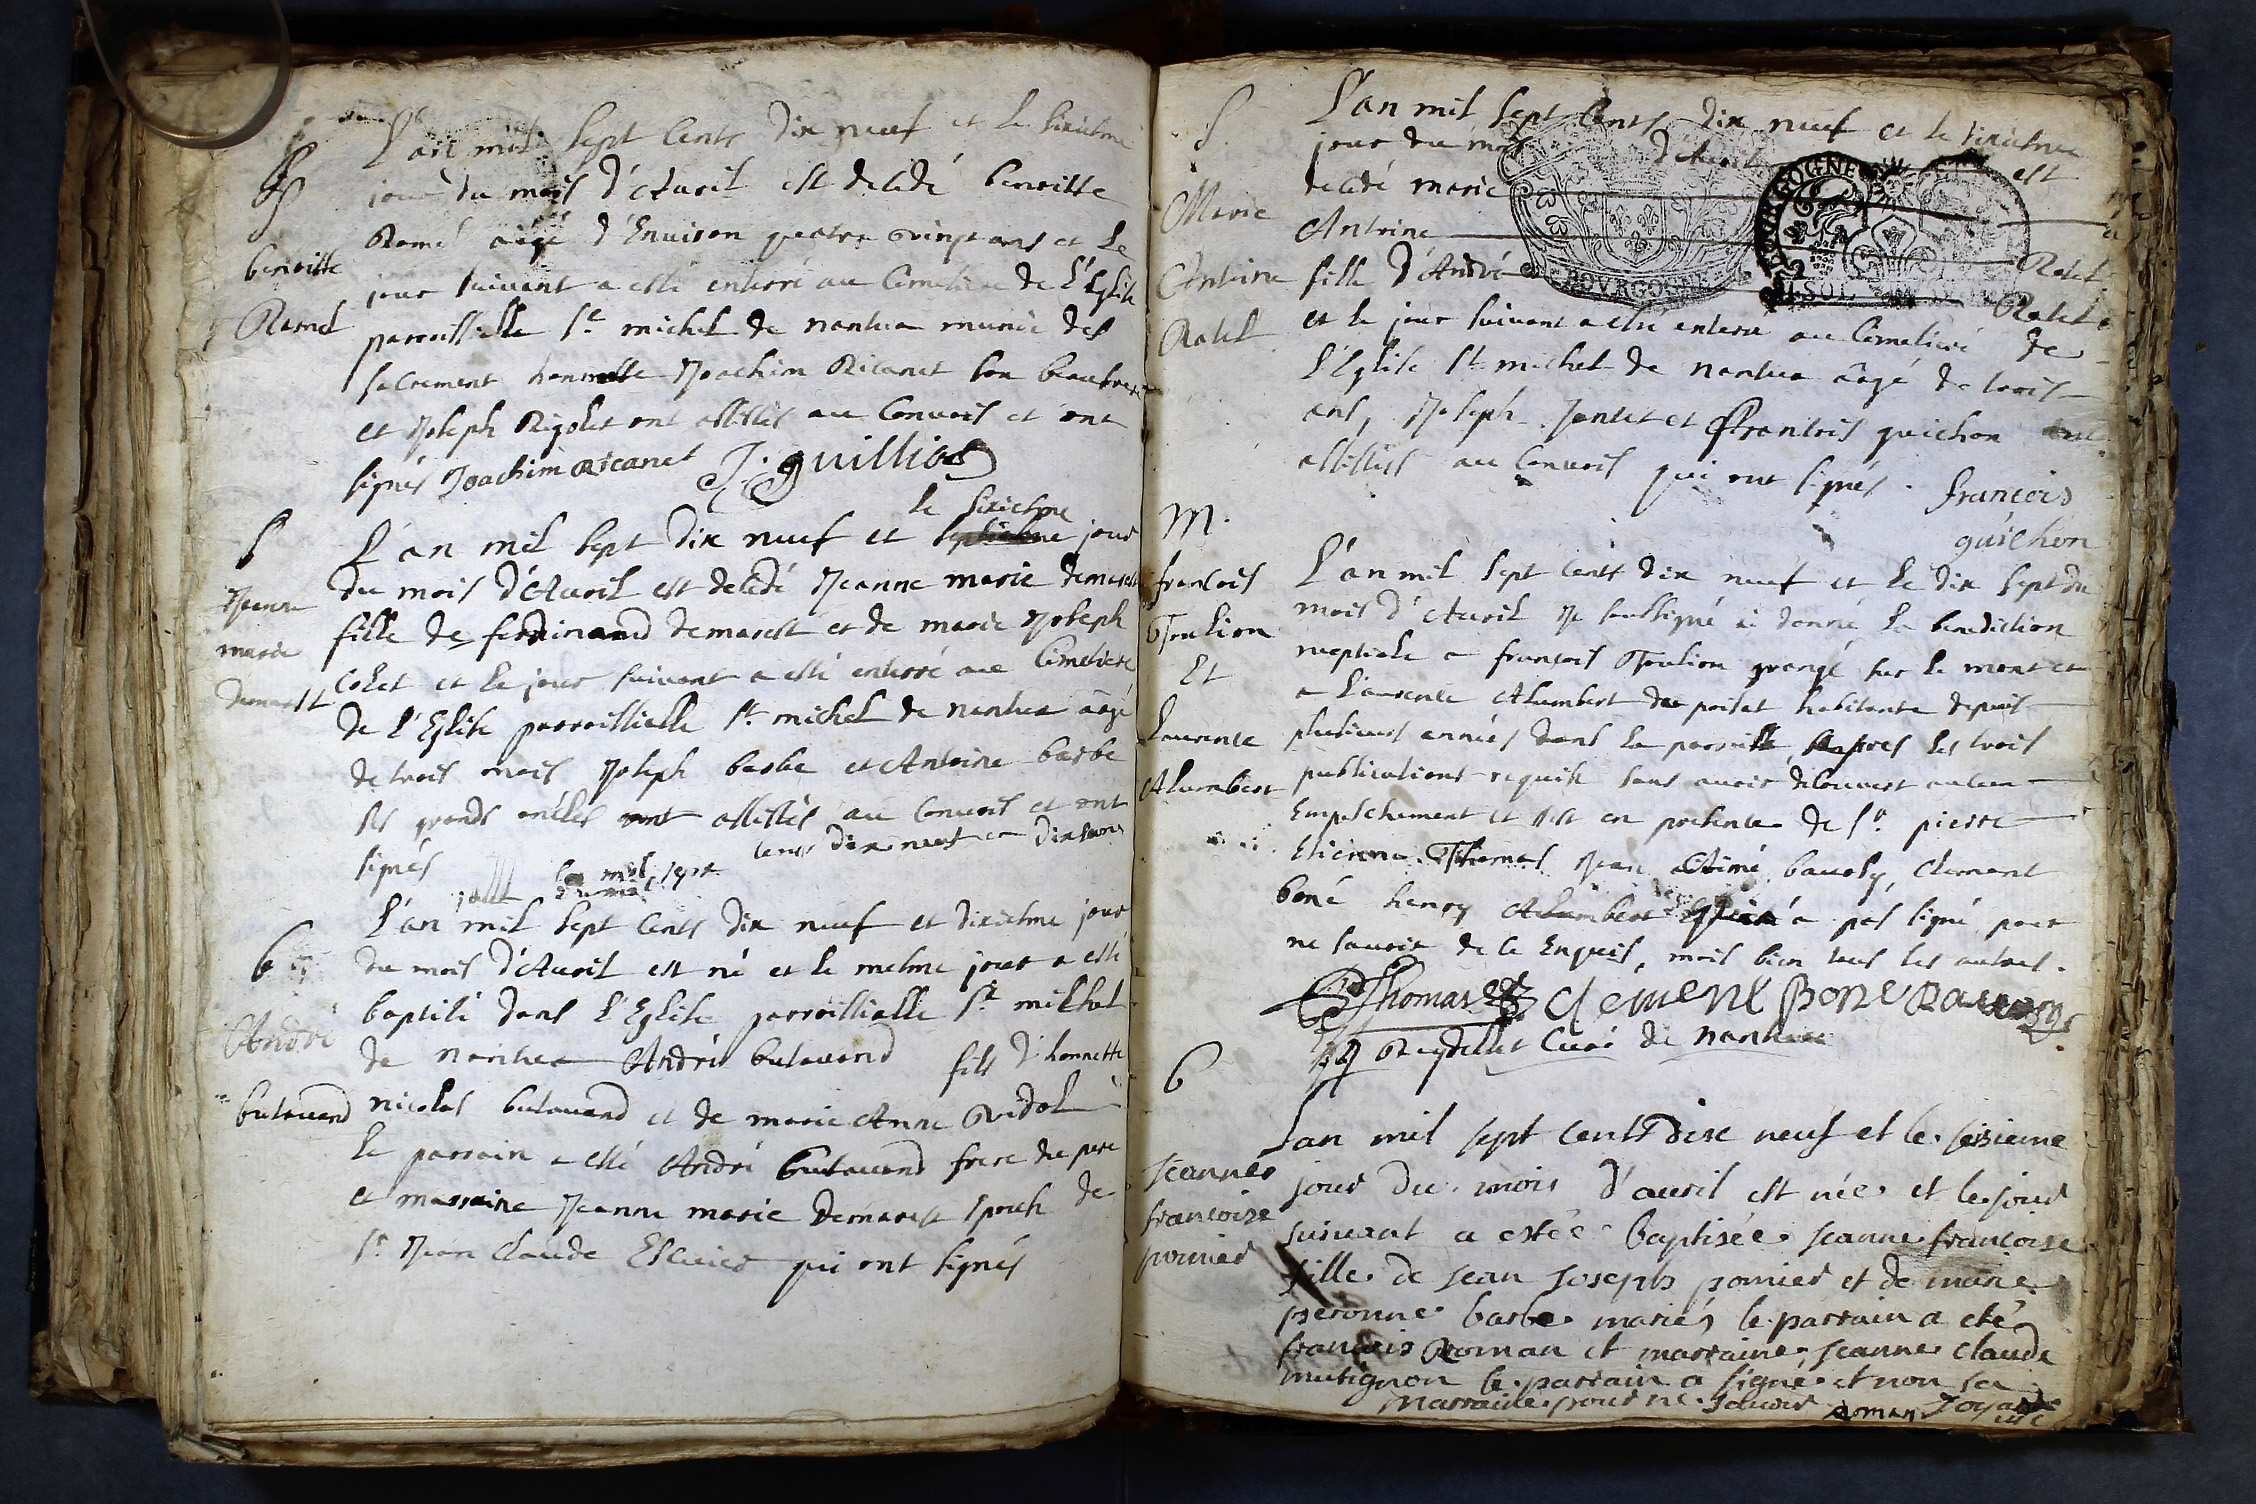 L'an mil sept cents dix neuf et le sixiesme
S
jour du mois d'Avril est decedé benoitte
benoitte
Ramel
Ramel aagé d'Environ quatre vingt ans et le
jour suivant a esté enterré au Cimetiere de l'Eglise
parroissialle St michel de nantua munie des
sacrement honnette Joachim Ricanet son beaufrere
et Joseph Rigolet ont assistés au Convois et ont
signés Joachim Ricanet J. guillion
S
Jeanne
marie
demarest
le sixiesme
L'an mil sept dix neuf et jour
du mois d'Avril est decedé Jeanne marie demarest
fille de ferdinand demarest et de marie Joseph
Colet et le jour suivant a esté enterré au Cimetiere
de l'Eglise parroissialle St michel de nantua aagé
de trois mois Joseph barbe et Antoine barbe
ses grands oncles ont assistés au Convois et ont
signés
mil sept cents dix neuf et
L'an mil sept cents dix neuf et dixiesme jour
b
André
butavand
du mois d'Avril est né et le mesme jour a esté
baptisé dans l'Eglise parroissialle St michel
de nantua André butavand fils d'honnette
nicolas butavand et de marie Anne Vidol
le parrain a esté André butavand frere du pere
et marraine Jeanne marie demarest epouse de
Sr Jean Claude Escuier qui ont signés
S
Marie
Antoine
Ratel
L'an mil sept cents dix neuf et le sixiesme
jour du mois d'Avril est
decedé marie
Antoine Ratel
fille d'André Ratel
BOURGOGNE
et le jour suivant a esté enterré au Cimetiere de
l'Eglise St michel de nantua aagé de trois
ans, Joseph Jantet et francois guichon ont
assistés au Convois qui ont signés. françois
guichon
M.
francois
Toulion
Et
Laurence
Alumbert
L'an mil sept cents dix neuf et le dix sept du
mois d'Avril Je soussigné ai donné la benediction
nuptiale a francois Toulion grangé sur le mont et
a Laurence Alumbert du poisat habitante depuis
plusieurs années dans la parroisse, apres les trois
publications requise sans avoir decouvert aulcun
Empeschement et est en presence de Sr pierre
Etienne Thomas Jean Aimé baudy, Clement
boné henry Alumbert a pas signé pour
ne sauoir de ce Enquis, mais bien tous les autres.
Thomas Clement Bone
Reydellet Curé de nantua
b
Jeanne
francoise
pomier
Lan mil sept cents dixe neuf et le seisieme
jour du mois d'avril est née et le jour
suivant a estée baptisée Jeanne francoise
fille de Jean Joseph pomier et de marie
peronne barbe mariés le parrain a eté
francois Roman et marraine Jeanne Claude
mutignon le parrain a signé et non la
marraine pour ne scavoir Roman